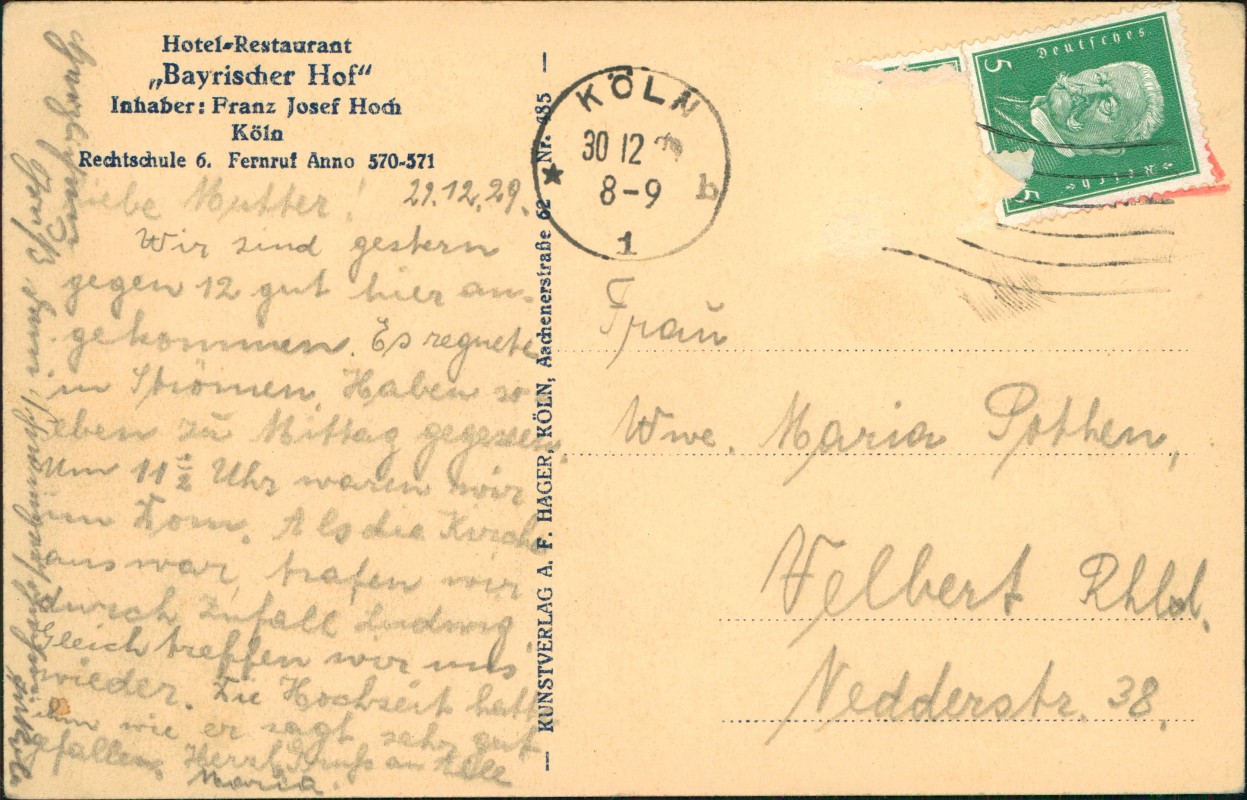 Hotel-Restaurant
„Bayrischer Hof“
Inhaber: Franz Josef Hoch
Köln
Rechtschule 6. Fernruf Anno 570-571
Liebe Mutter! 29.12.29.
Wir sind gestern
gegen 12 gut hier an-
gekommen. Es regnete
in Strömen. Haben so-
eben zu Mittag gegessen.
Um 11 1/2 Uhr waren wir
im Dom. Als die Kirche
aus war, trafen wir
durch Zufall Ludwig.
Gleich treffen wir uns
wieder. Die Hochzeit hat
ihm wie er sagt sehr gut
gefallen. Herzl. Gruß an alle
Maria.
— KUNSTVERLAG A. F. HAGER, KÖLN, Aachenerstraße 62 Nr. 485 —
KÖLN
30 12
8-9
b
1
Deutsches
Reich
5
5
Frau
Wwe. Maria Pothen,
Velbert Rhld.
Nedderstr. 38.